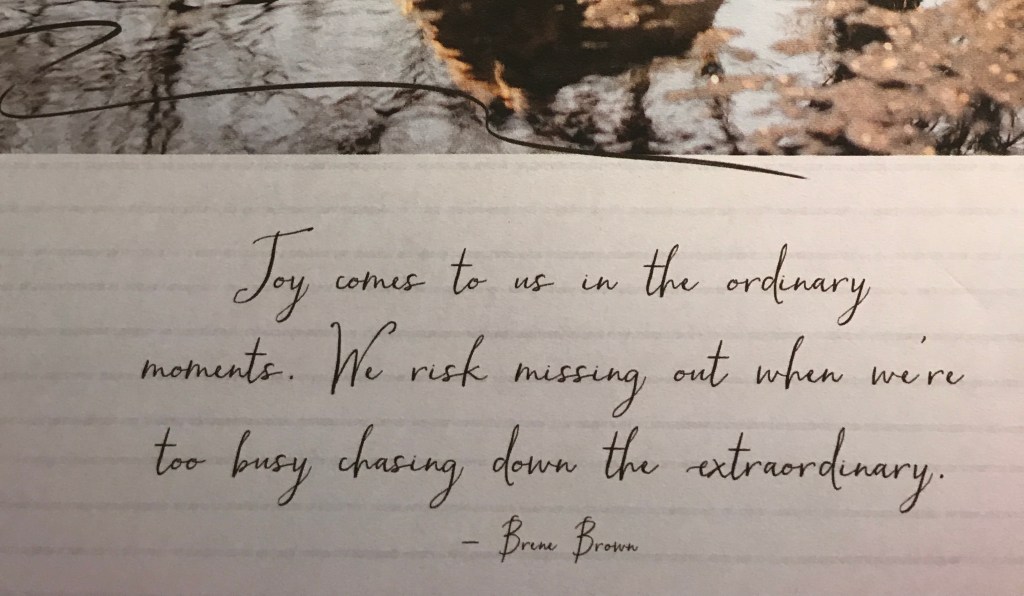 Joy comes to us in the ordinary
moments. We risk missing out when we're
too busy chasing down the extraordinary.
- Brene Brown